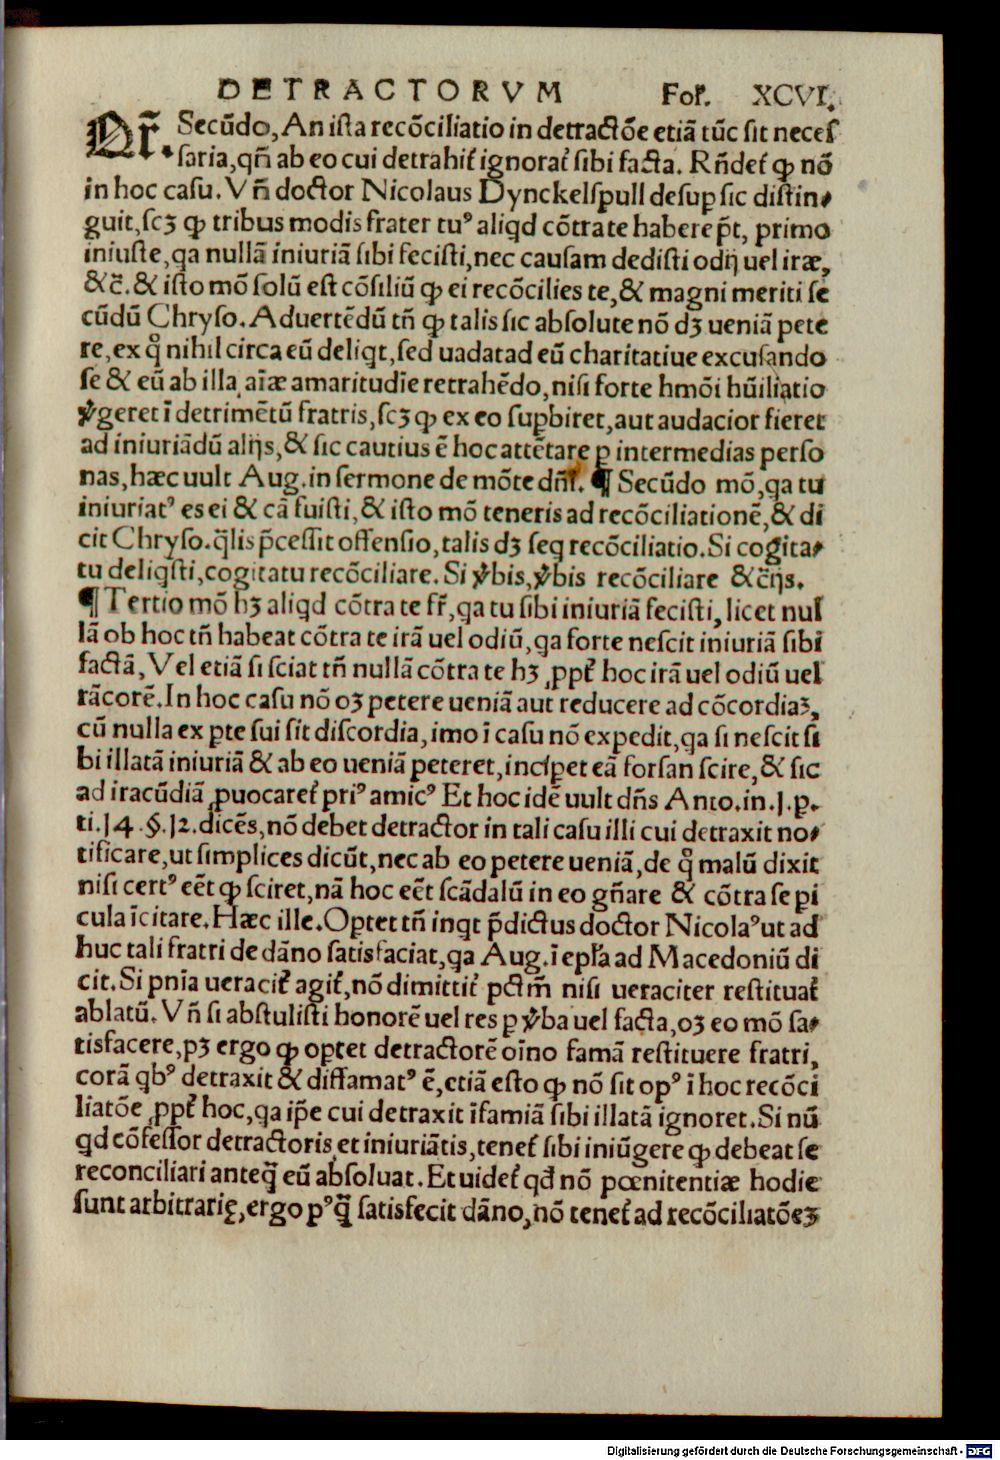 DETRACTORVM Fol. XCVI.
Qr̃. Secũdo, An ista recõciliatio in detractõe etiã tũc sit necef
saria, qñ ab eo cui detrahit̃ ignorat̃ sibi facta. Rñdet̃ ꝙ nõ
in hoc casu. Vñ doctor Nicolaus Dynckelspull desup sic distin⸗
guit, scꝫ ꝙ tribus modis frater tuꝰ aliqd cõtra te habere p̃t, primo
iniuste, qa nullã iniuriã sibi fecisti, nec causam dedisti odij uel iræ,
&c̃. & isto mõ solũ est cõsiliũ ꝙ ei recõcilies te, & magni meriti se
cũdũ Chryso. Aduertẽdũ tñ ꝙ talis sic absolute nõ dꝫ ueniã pete
re, ex qͦ nihil circa eũ deliqt, sed uadat ad eũ charitatiue excusando
se & eũ ab illa aĩæ amaritudĩe retrahẽdo, nisi forte hmõi hũiliatio
ꝟgeret ĩ detrimẽtũ fratris, scꝫ ꝙ ex eo supbiret, aut audacior fieret
ad iniuriãdũ alijs, & sic cautius ẽ hoc attẽtare ꝑ intermedias perso
nas, hæc uult Aug. in sermone de mõte dñi. ¶ Secũdo mõ, qa tu
iniuriatꝰ es ei & cã fuisti, & isto mõ teneris ad recõciliationẽ, & di
cit Chryso. q̃lis p̃cessit offensio, talis dꝫ seq recõciliatio. Si cogita⸗
tu deliqsti, cogitatu recõciliare. Si ꝟbis, ꝟbis recõciliare &c̃ijs.
¶ Tertio mõ hꝫ aliqd cõtra te fr̃, qa tu sibi iniuriã fecisti, licet nul
lã ob hoc tñ habeat cõtra te irã uel odiũ, qa forte nescit iniuriã sibi
factã, Vel etiã si sciat tñ nullã cõtra te hꝫ ꝓpt̃ hoc irã uel odiũ uel
rãcorẽ. In hoc casu nõ oꝫ petere ueniã aut reducere ad cõcordiaꝫ,
cũ nulla ex ꝑte sui sit discordia, imo ĩ casu nõ expedit, qa si nescit si
bi illatã iniuriã & ab eo ueniã peteret, incipet eã forsan scire, & sic
ad iracũdiã ꝓuocaret̃ priꝰ amicꝰ Et hoc idẽ uult dñs Anto. in .J. p.
ti. J4. §. J2. dicẽs, nõ debet detractor in tali casu illi cui detraxit no⸗
tificare, ut simplices dicũt, nec ab eo petere ueniã, de qͦ malũ dixit
nisi certꝰ eẽt ꝙ sciret, nã hoc eẽt scãdalũ in eo gñare & cõtra se pi
cula ĩcitare. Hæc ille. Optet tñ inqt p̃dictus doctor Nicolaꝰ ut ad
huc tali fratri de dãno satisfaciat, qa Aug. ĩ epl̃a ad Macedoniũ di
cit. Si pñia ueracit̃ agit̃, nõ dimittit̃ pctm̃ nisi ueraciter restituat̃
ablatũ. Vñ si abstulisti honorẽ uel res ꝑ ꝟba uel facta, oꝫ eo mõ sa⸗
tisfacere, pꝫ ergo ꝙ optet detractorẽ oĩno famã restituere fratri,
corã qbꝰ detraxit & diffamatꝰ ẽ, etiã esto ꝙ nõ sit opꝰ ĩ hoc recõci
liatõe ꝓpt̃ hoc, qa ip̃e cui detraxit ĩfamiã sibi illatã ignoret. Si nũ
qd cõfessor detractoris et iniuriãtis, tenet̃ sibi iniũgere ꝙ debeat se
reconciliari anteq̃ eũ absoluat. Et uidet̃ qđ nõ pœnitentiæ hodie
sunt arbitrarię, ergo pꝰq̃ satisfecit dãno, nõ tenet̃ ad recõciliatõeꝫ
Digitalisierung gefördert durch die Deutsche Forschungsgemeinschaft - DFG